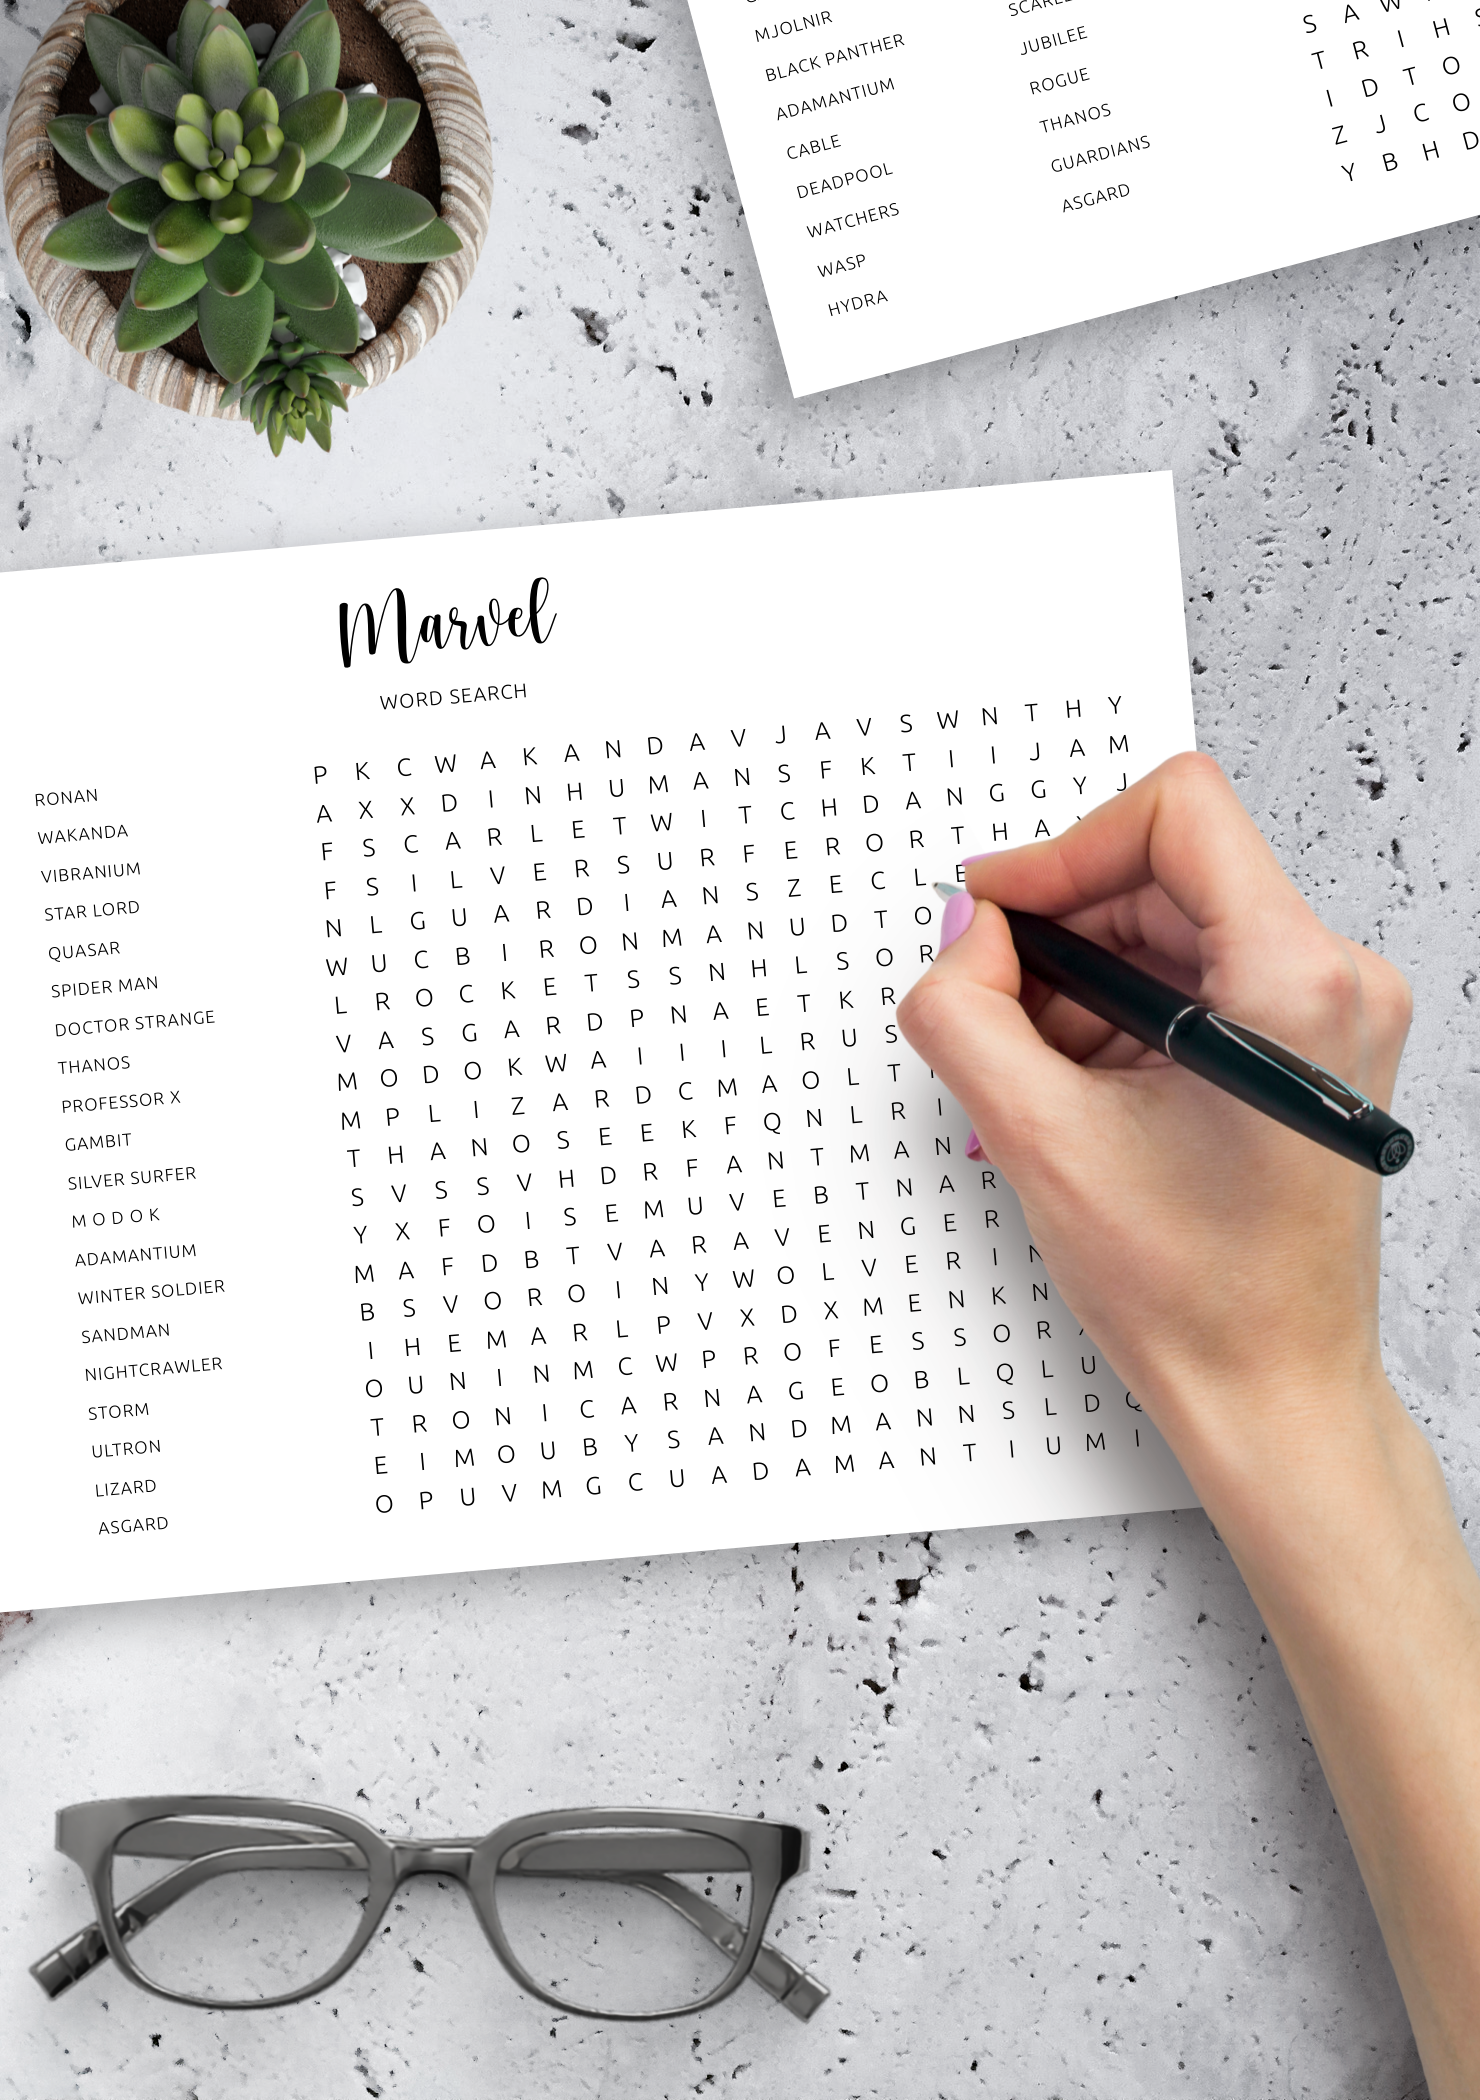 MJOLNIR
BLACK PANTHER
ADAMANTIUM
CABLE
DEADPOOL
WATCHERS
WASP
HYDRA
JUBILEE
ROGUE
THANOS
GUARDIANS
ASGARD
S A W
T R I H
I D T O
Z J C O
Y B H D
Marvel
WORD SEARCH
RONAN
WAKANDA
VIBRANIUM
STAR LORD
QUASAR
SPIDER MAN
DOCTOR STRANGE
THANOS
PROFESSOR X
GAMBIT
SILVER SURFER
M O D O K
ADAMANTIUM
WINTER SOLDIER
SANDMAN
NIGHTCRAWLER
STORM
ULTRON
LIZARD
ASGARD
P K C W A K A N D A V J A V S W N T H Y
A X X D I N H U M A N S F K T I I J A M
F S C A R L E T W I T C H D A N G G Y J
F S I L V E R S U R F E R O R T H A
N L G U A R D I A N S Z E C L E
W U C B I R O N M A N U D T O
L R O C K E T S S N H L S O R
V A S G A R D P N A E T K R
M O D O K W A I I I L R U S
M P L I Z A R D C M A O L T
T H A N O S E E K F Q N L R I
S V S S V H D R F A N T M A N
Y X F O I S E M U V E B T N A R
M A F D B T V A R A V E N G E R
B S V O R O I N Y W O L V E R I N
I H E M A R L P V X D X M E N K N
O U N I N M C W P R O F E S S O R
T R O N I C A R N A G E O B L Q L U
E I M O U B Y S A N D M A N N S L D Q
O P U V M G C U A D A M A N T I U M I